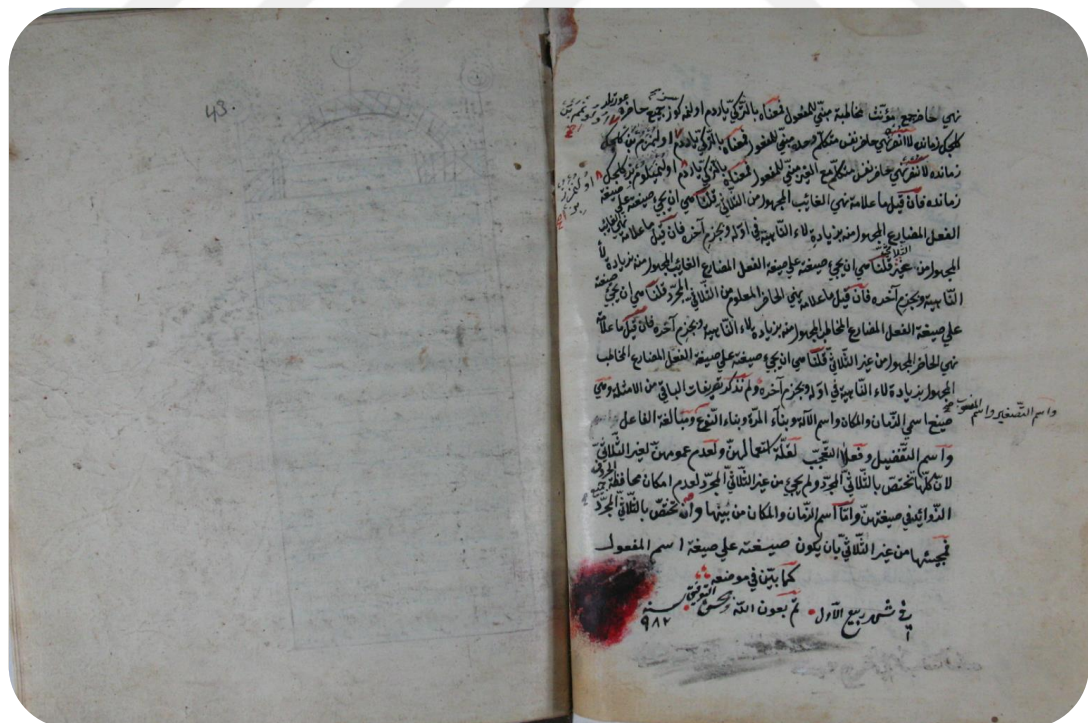 43.
نهي حاضر جمع مؤنث مخاطبة مبني للمفعول فمعناه بالتركي ياردم اولنمه كوز جميع حاضره عورتلر
كلجك زمانده لا انصر نهي حاضر نفس متكلم وحده مبني للمفعول فمعناه بالتركي ياردم اولنميم بن كلجك
زمانده لا ننصر نهي حاضر نفس متكلم مع الغير مبني للمفعول فمعناه بالتركي ياردم اولنميلوم بز كلجك
زمانده فان قيل ما علامة نهي الغائب المجهول من الثلاثي قلنا هي ان يجئ صيغته على صيغة
الفعل المضارع المجهول منه بزيادة لاء الناهية في اوله وبجزم آخره فان قيل ما علامة نهي الغائب
المجهول من غير الثلاثي قلنا هي ان يجئ صيغته على صيغة الفعل المضارع الغائب المجهول منه بزيادة لاء
الناهية وبجزم آخره فان قيل ما علامة نهي الحاضر المعلوم من الثلاثي المجرد قلنا هي ان يجئ صيغته
على صيغة الفعل المضارع المخاطب المجهول منه بزيادة لاء الناهية وبجزم آخره فان قيل ما علامة
نهي الحاضر المجهول من غير الثلاثي قلنا هي ان يجئ صيغته على صيغة الفعل المضارع المخاطب
المجهول بزيادة لاء الناهية في اوله وبجزم آخره ولم نذكر تصريفات الباقي من الامثلة وهي
صيغ اسمي الزمان والمكان واسم الآلة وبناء المرة وبناء النوع ومبالغة الفاعل
واسم التصغير واسم المنسوب صح
واسم التفضيل وفعلا التعجب لقلة استعمالهن ولعدم عمومهن لغير الثلاثي
لان كلها تختص بالثلاثي المجرد ولم يجئ من غير الثلاثي المجرد لعدم امكان محافظة الحروف
الزوائد في صيغهن واما اسم الزمان والمكان من بينها وان تختص بالثلاثي المجرد
فمجيئها من غير الثلاثي بان يكون صيغته على صيغة اسم المفعول
كما بين في موضعه
تم بعون الله وحسن التوفيق
في شهر ربيع الاول سنة ٩٨٢